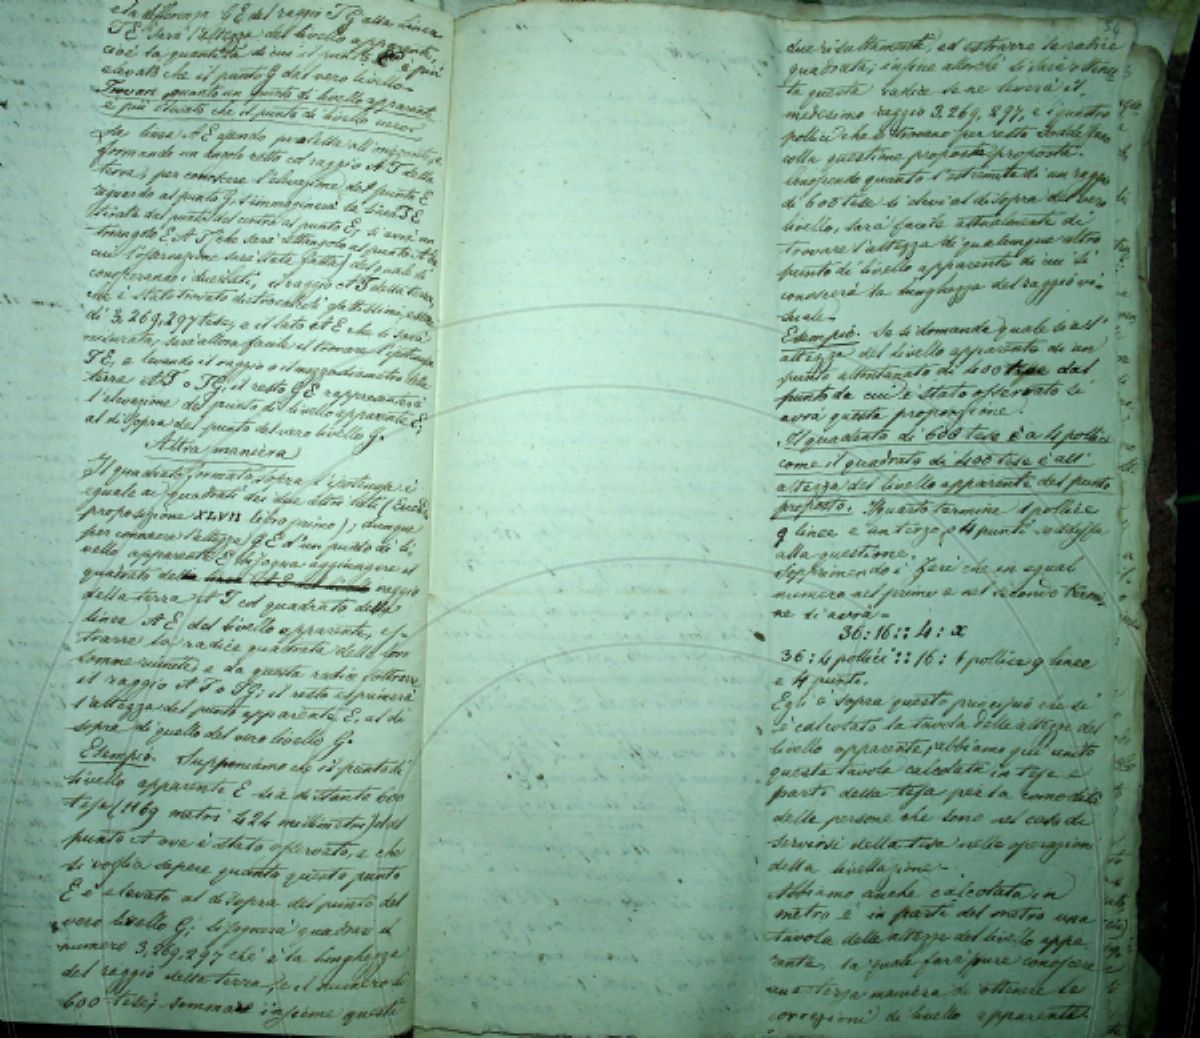 e la differenza GE del raggio TG alla Linea
TE sarà l'altezza del livello apparente,
cioè la quantità di cui il punto E è più
elevato che il punto G del vero livello.
Trovare quanto un punto di livello apparente
è più elevato che il punto di livello vero.
La linea AE essendo paralella all'orizzonte, e
formando un angolo retto col raggio AT della
terra, per conoscere l'elevazione del punto E
riguardo al punto G, s'immaginerà la linea TE
tirata dal punto del centro al punto E, si avrà un
triangolo EAT che sarà rettangolo al punto A da
cui l'osservazione sarà stata fatta; del quale si
conosceranno i due lati, il raggio AT della terra,
che è stato trovato da travagli esattissimi, essere
di 3,269,297 tese, e il lato AE che si sarà
misurato, sarà allora facile il trovare l'ipotenusa
TE, e levando il raggio o il mezzo diametro della
terra AT o TG; il resto GE rappresenterà
l'elevazione del punto di livello apparente E,
al di sopra del punto del vero livello G.
Altra maniera
Il quadrato formato sopra l'ipotenusa è
eguale ai quadrati dei due altri lati (Euclide
proposizione XLVII libro primo); dunque
per conoscere l'altezza GE d'un punto di li-
vello apparente E bisogna aggiungere il
quadrato del raggio
della terra AT col quadrato della
linea AE del livello apparente, es-
trarre la radice quadrata delle loro
somme riunite, e da questa radice sottrarre
il raggio AT o TG; il resto esprimerà
l'altezza del punto apparente E, al di
sopra di quello del vero livello G.
Esempio. Supponiamo che il punto di
livello apparente E sia distante 600
tese (1169 metri 424 millimetri) dal
punto A ove è stato osservato, e che
si voglia sapere quanto questo punto
E è elevato al di sopra del punto del
vero livello G; bisognerà quadrare il
numero 3,269,297 che è la lunghezza
del raggio della terra, e il numero di
600 tese; sommare insieme questi
due risultamenti, ed estrarre la radice
quadrata; infine allorché si sarà ottenu-
ta questa radice se ne leverà il
medesimo raggio 3,269,297, e i quattro
pollici che
colla questione proposta.
Conoscendo quanto l'estremità di un raggio
di 600 tese si elevi al di sopra del vero
livello, sarà facile attualmente di
trovare l'altezza di qualunque altro
punto di livello apparente di cui si
conoscerà la lunghezza del raggio vi-
suale.
Esempio. Se si domanda quale è l'al-
altezza del livello apparente di un
punto allontanato di 400 tese dal
punto da cui è stato osservato si
avrà questa proporzione.
Il quadrato di 600 tese è a 4 pollici
come il quadrato di 400 tese è all'
altezza del livello apparente del punto
proposto. Quarto termine 1 pollice
9 linee e un terzo, o 4 punti sodisfa
alla questione.
Sopprimendo i zeri che in egual
numero nel primo e nel secondo termi-
ne si avrà =
36 : 16 :: 4 : x
36 : 4 pollici :: 16 : 1 pollice 9 linee
e 4 punti.
Egli è sopra questo principio che si
è calcolato la tavola delle altezze del
livello apparente, abbiamo qui unito
questa tavola calcolata in tese e
parti della tesa per la comodità
delle persone che sono nel caso di
servirsi della tesa nelle operazioni
della livellazione.
Abbiamo anche calcolata in
metro e in parti del metro una
tavola delle altezze del livello appa
rente, la quale farà pure conoscere
una terza maniera di ottenere le
correzioni di livello apparente.